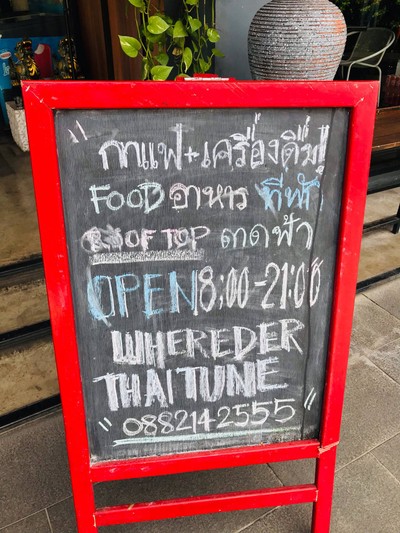 "กาแฟ+เครื่องดื่ม
FOOD อาหาร ที่พัก
ROOFTOP ดาดฟ้า
OPEN 8:00-21:00
WHEREDER
THAITUNE
0882142555"